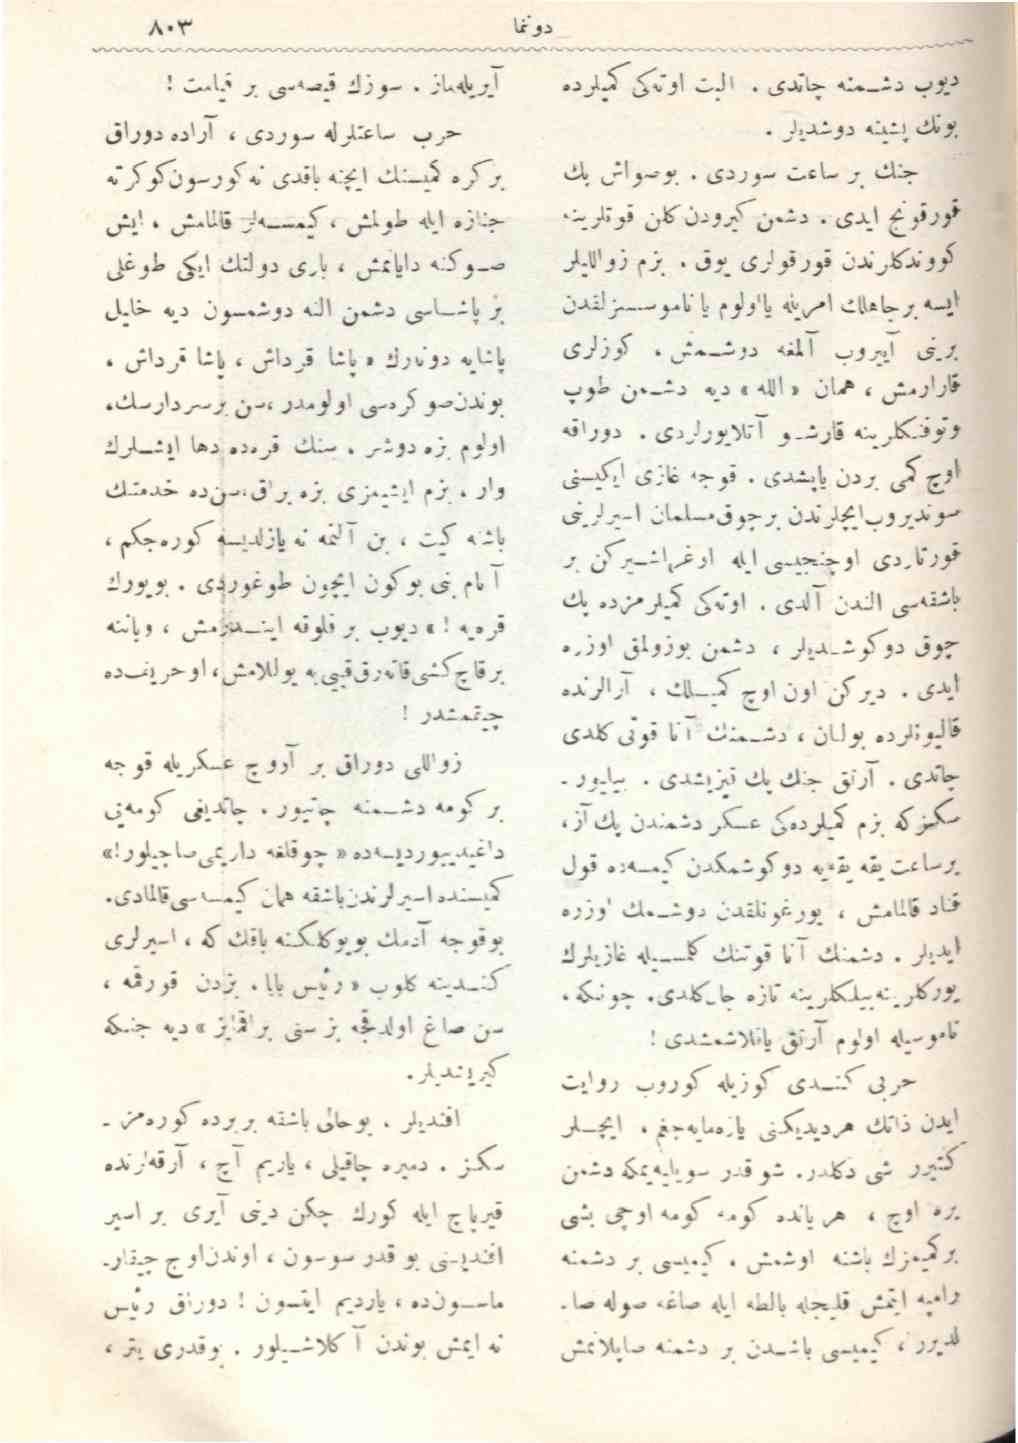 دوننما
٨٠٣
ديوب دشمنه چاتدى . البت اوته‌كى كميلرده
بونك پشينه دوشديلر .
جنك بر ساعت سوردى . بوصواش پك
قورقونج ايدى . دشمن كيرودن كلن قوتلرينه
كووندكلرندن قورقولرى يوق . بزم زواللیلر
ايسه بر جاهلك امرينه يا اولوم يا ناموسسزلقدن
برينى آييروب آلمغه دوشمش ، كوزلرى
قارارمش ، همان « الله » ديه دشمن طوپ
وتوفنكلرينه قارشو آتلايورلردى . دوراقه
اوچ كمى بردن ياپشدى . قوجه غازى ايكيسنى
سونديروب ايچلرندن برچوق مسلمان اسيرلرينى
قورتاردى اوچنجيسى ايله اوغراشيركن بر
باشقه‌سى الندن آلدى . اوته‌كى كميلرمزده پك
چوق دوكوشديلر ، دشمن بوزولمق اوزره
ايدى . ديركن اون اوچ كميلك ، آرالرنده
قاليونلرده بولنان ، دشمنك آنا قوتى كلدى
چاتدى . آرتق جنك پك قيزيشدى . بيليور-
سكز كه بزم كميلرده‌كى عسكر دشمندن پك آز ،
بر ساعت يقه يقه‌يه دوكوشمكدن كيمسه‌ده قول
قناد قالمامش ، يورغونلقدن دوشمك اوزره
ايديلر . دشمنك آنا قوتنك كلمسيله غازيلرك
يوركلرينه بيلكلرينه تازه جان كلدى . چونكه ،
ناموسيله اولوم آرتق ياقلاشمشدى !
حربى كندى كوزيله كوروب روايت
ايدن ذاتك هرديديكنى يازه‌مايه‌جغم . ايچلر
شى دكلدر . شو قدر سويليه‌يمكه دشمن
يره اوچ ، هر يانده كومه كومه اوچى بشى
بر كميمزك باشنه اوشمش . كيميسى بر دشمنه
رامپه ايتمش قليجله بالطه ايله صاغه صوله صا-
لديرر ، كيميسى باشدن بر دشمنه صاپلانمش
آيريله‌ماز . سوزك قيصه‌سى بر قيامت !
حرب ساعتلرله سوردى ، آراده دوراق
بر كره كميسنك ايچنه باقدى نه كورسون كوكرته
جنازه ايله طولمش ، كيمسه‌لر قالمامش ، ايش
صوكنه دايانمش ، بارى دولتك ايكى طوغلى
بر پاشاسى دشمن النه دوشمسون ديه خليل
پاشايه دونه‌رك « پاشا قرداش ، پاشا قرداش ،
بوندن صوكره‌سى اولومدر ، سن بر سردارسك ،
اولوم بزه دوشر . سنك قره‌ده دها ايشلرك
وار . بزم ايشيمزى بزه براق ، سن ده خدمتك
باشنه كيت ، بن آلنمه نه يازلديسه كوره‌جكم ،
آنام بنى بوكون ايچون طوغوردى . بويورك
قره‌يه ! » ديوب بر فلوقه اينديرمش ، وياننه
برقاچ كشى قاته‌رق قييى‌يه يوللامش ، او حريف ده
چيقمشدر !
زواللى دوراق بر آووج عسكريله قوجه
بر كومه دشمنه چاتيور . چاتديغى كومه‌يى
داغيديیورديسه‌ده « چوقلغه داريمى صاچيلور ! »
كميسنده اسيرلرندن باشقه همان كيمسه‌سى قالمادى .
بو قوجه آدمك بويوكلكنه باقك كه ، اسيرلرى
كندينه كلوب « رئيس بابا . بزدن قورقمه ،
سن صاغ اولدقجه بز سنى براقمايز » ديه جنكه
كيريشديلر .
افنديلر . بو حالى باشقه بر يرده كوره‌مز-
سكز . دميره چاقيلى ، ياريم آچ ، آرقه‌لرنده
قيرباچ ايله كورك چكن دينى آيرى بر اسير
افنديسنى بو قدر سوسون ، اوندن اوج چيقار-
ماسون ده ، يارديم ايتسون ! دوراق رئيس
نه ايمش بوندن آكلاشيلور . بوقدرى يتر ،